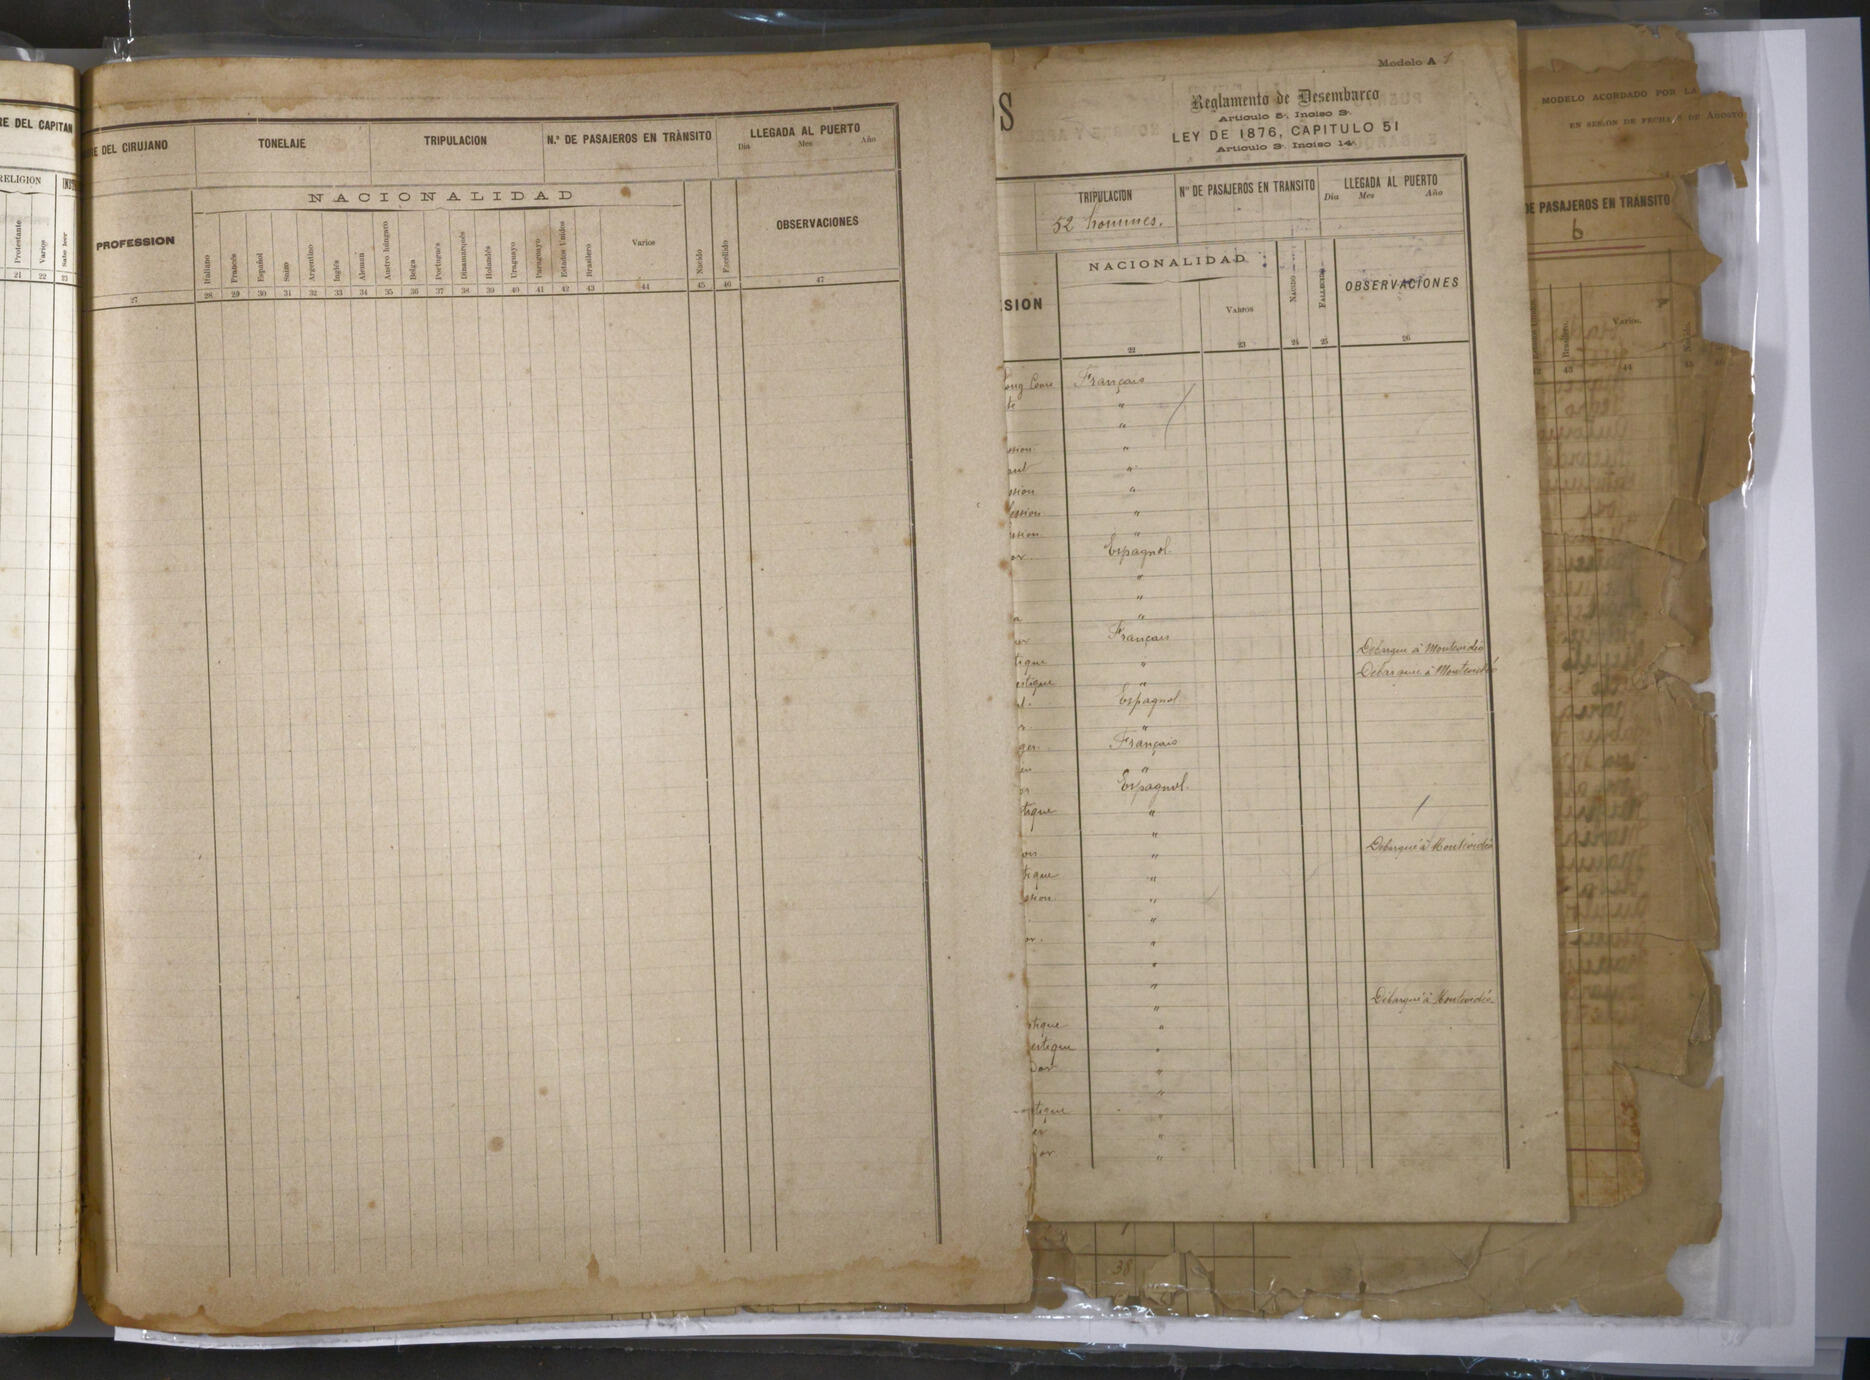 RE DEL CAPITAN
RELIGION
Protestante
Varios
Sabe leer
21 22 23
RE DEL CIRUJANO
TONELAJE
TRIPULACION
N.º DE PASAJEROS EN TRÁNSITO
LLEGADA AL PUERTO
Dia Mes Año
NACIONALIDAD
PROFESSION
Italiano
Francés
Español
Suizo
Argentino
Inglés
Alemán
Austro húngaro
Belga
Portugués
Dinamarqués
Holandés
Uruguayo
Paraguayo
Estados Unidos
Brasilero
Varios
Nacido
Fallecido
OBSERVACIONES
27 28 29 30 31 32 33 34 35 36 37 38 39 40 41 42 43 44 45 46 47
OS
Modelo A
Reglamento de Desembarco
Articulo 5º. Inciso 3º.
LEY DE 1876, CAPITULO 51
Articulo 3º. Inciso 14º.
TRIPULACION
52 hommes.
Nº DE PASAJEROS EN TRANSITO
LLEGADA AL PUERTO
Dia Mes Año
SION
NACIONALIDAD
VARIOS
NACIDO
FALLECIDO
OBSERVACIONES
22 23 24 25 26
ong Cours Français
te "
"
ssion "
ent "
ssion "
fession "
ssion "
or Espagnol
"
"
a "
er Français Débarqué à Montevideo
tique " Débarqué à Montevideo
estique "
Espagnol
"
ger Français
"
Espagnol
tique "
"
" Débarqué à Montévidéo
tique "
ssion "
"
or. "
"
"
" Débarqué à Montevideo
stique "
estique "
dor "
"
stique "
er "
or "
MODELO ACORDADO POR LA
EN SESION DE FECHA 8 DE AGOSTO
DE PASAJEROS EN TRÁNSITO
6
Brasilero.
Varios.
Nacido.
43 44 45
38